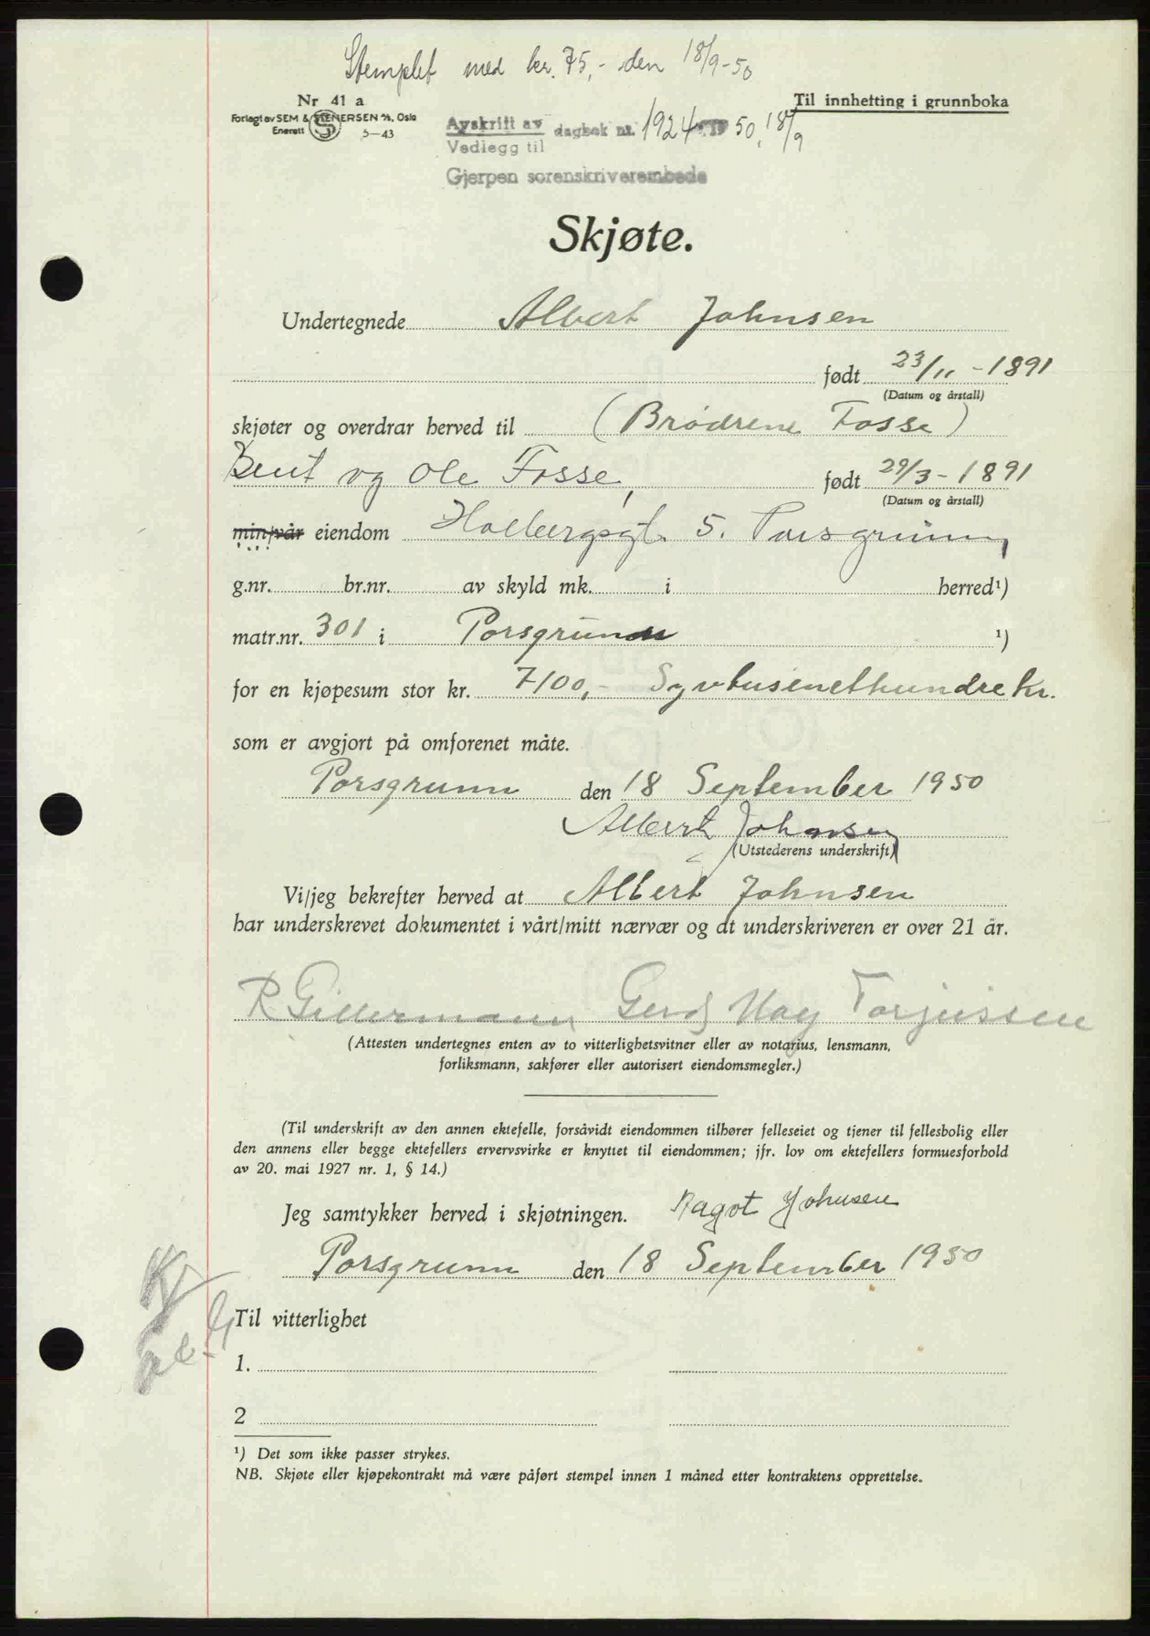 Stemplet med kr. 75,- den 18/9-50
Nr 41 a
Til innhefting i grunnboka
Forlagt av SEM & STENERSEN A/S, Oslo
Enerett 5-43
Avskrift av dagbok nr. 1924 19 50, 18/9
Vedlegg til
Gjerpen sorenskriverembede
Skjøte.
Undertegnede Albert Johnsen
født 23/11 - 1891
(Datum og årstall)
skjøter og overdrar herved til (Brødrene Fosse)
Bent og Ole Fosse, født 29/3 - 1891
(Datum og årstall)
min/vår eiendom Holbergsgt. 5. Porsgrunn,
g.nr. br.nr. av skyld mk. i herred¹)
matr.nr. 301 i Porsgrunn ¹)
for en kjøpesum stor kr. 7100,- Syvtusenethundre kr.
som er avgjort på omforenet måte.
Porsgrunn den 18 September 1950
Albert Johnsen
(Utstederens underskrift)
Vi/jeg bekrefter herved at Albert Johnsen
har underskrevet dokumentet i vårt/mitt nærvær og at underskriveren er over 21 år.
R Gillermann Gerd May Torjussen
(Attesten undertegnes enten av to vitterlighetsvitner eller av notarius, lensmann,
forliksmann, sakfører eller autorisert eiendomsmegler.)
(Til underskrift av den annen ektefelle, forsåvidt eiendommen tilhører felleseiet og tjener til fellesbolig eller
den annens eller begge ektefellers ervervsvirke er knyttet til eiendommen; jfr. lov om ektefellers formuesforhold
av 20. mai 1927 nr. 1, § 14.)
Jeg samtykker herved i skjøtningen. Ragot Johnsen
Porsgrunn den 18 September 1950
Til vitterlighet
1.
2
¹) Det som ikke passer strykes.
NB. Skjøte eller kjøpekontrakt må være påført stempel innen 1 måned etter kontraktens opprettelse.